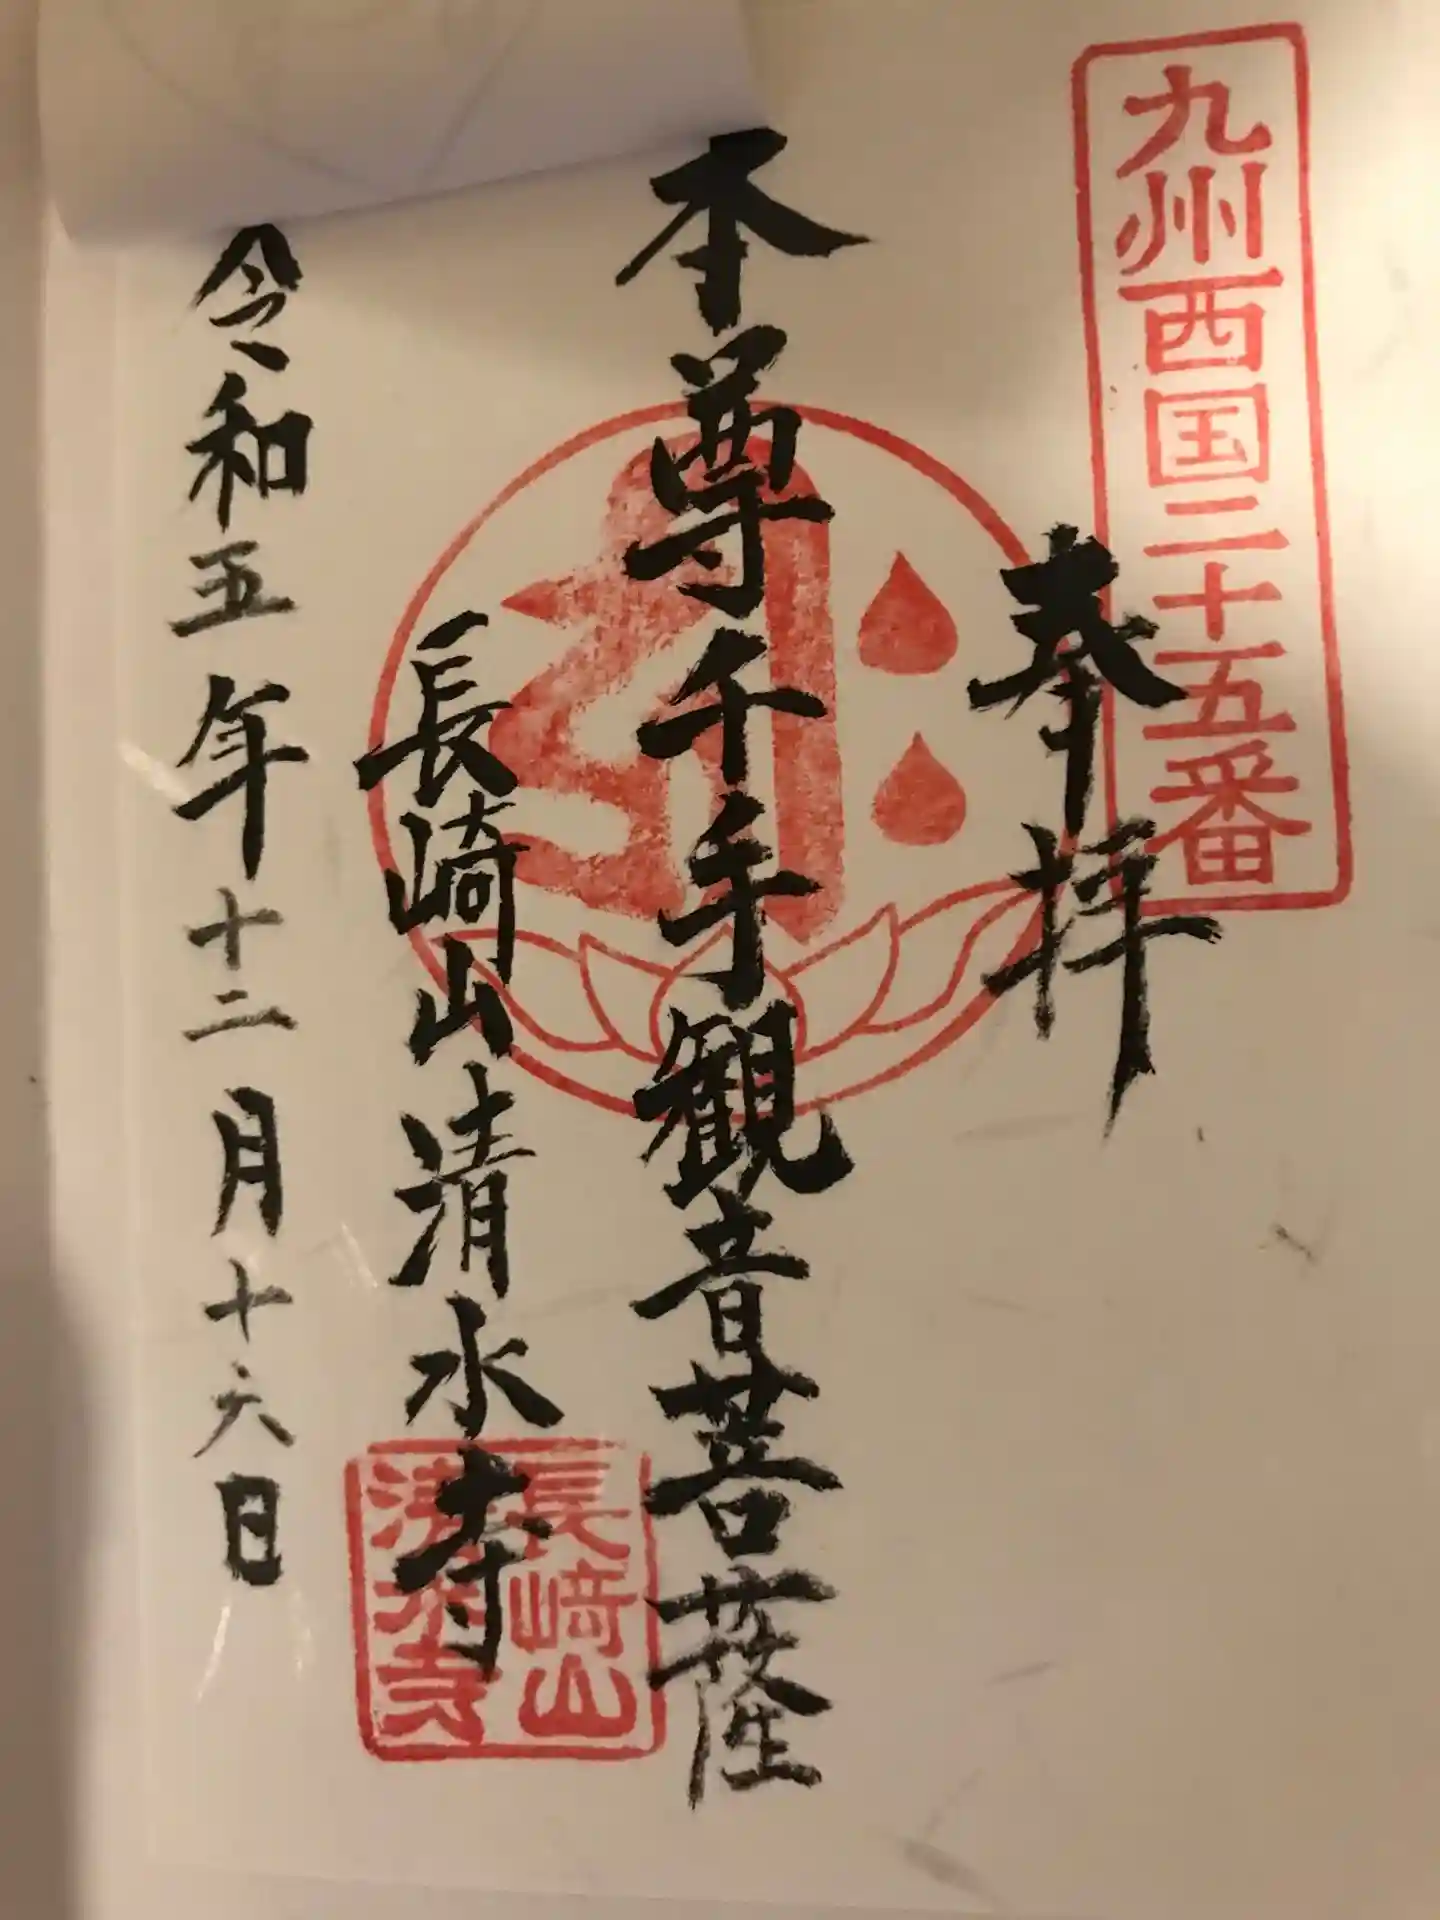 九州西国二十五番
奉拝
本尊千手観音菩薩
長崎山清水寺
長崎山
清水寺
令和五年十二月十六日